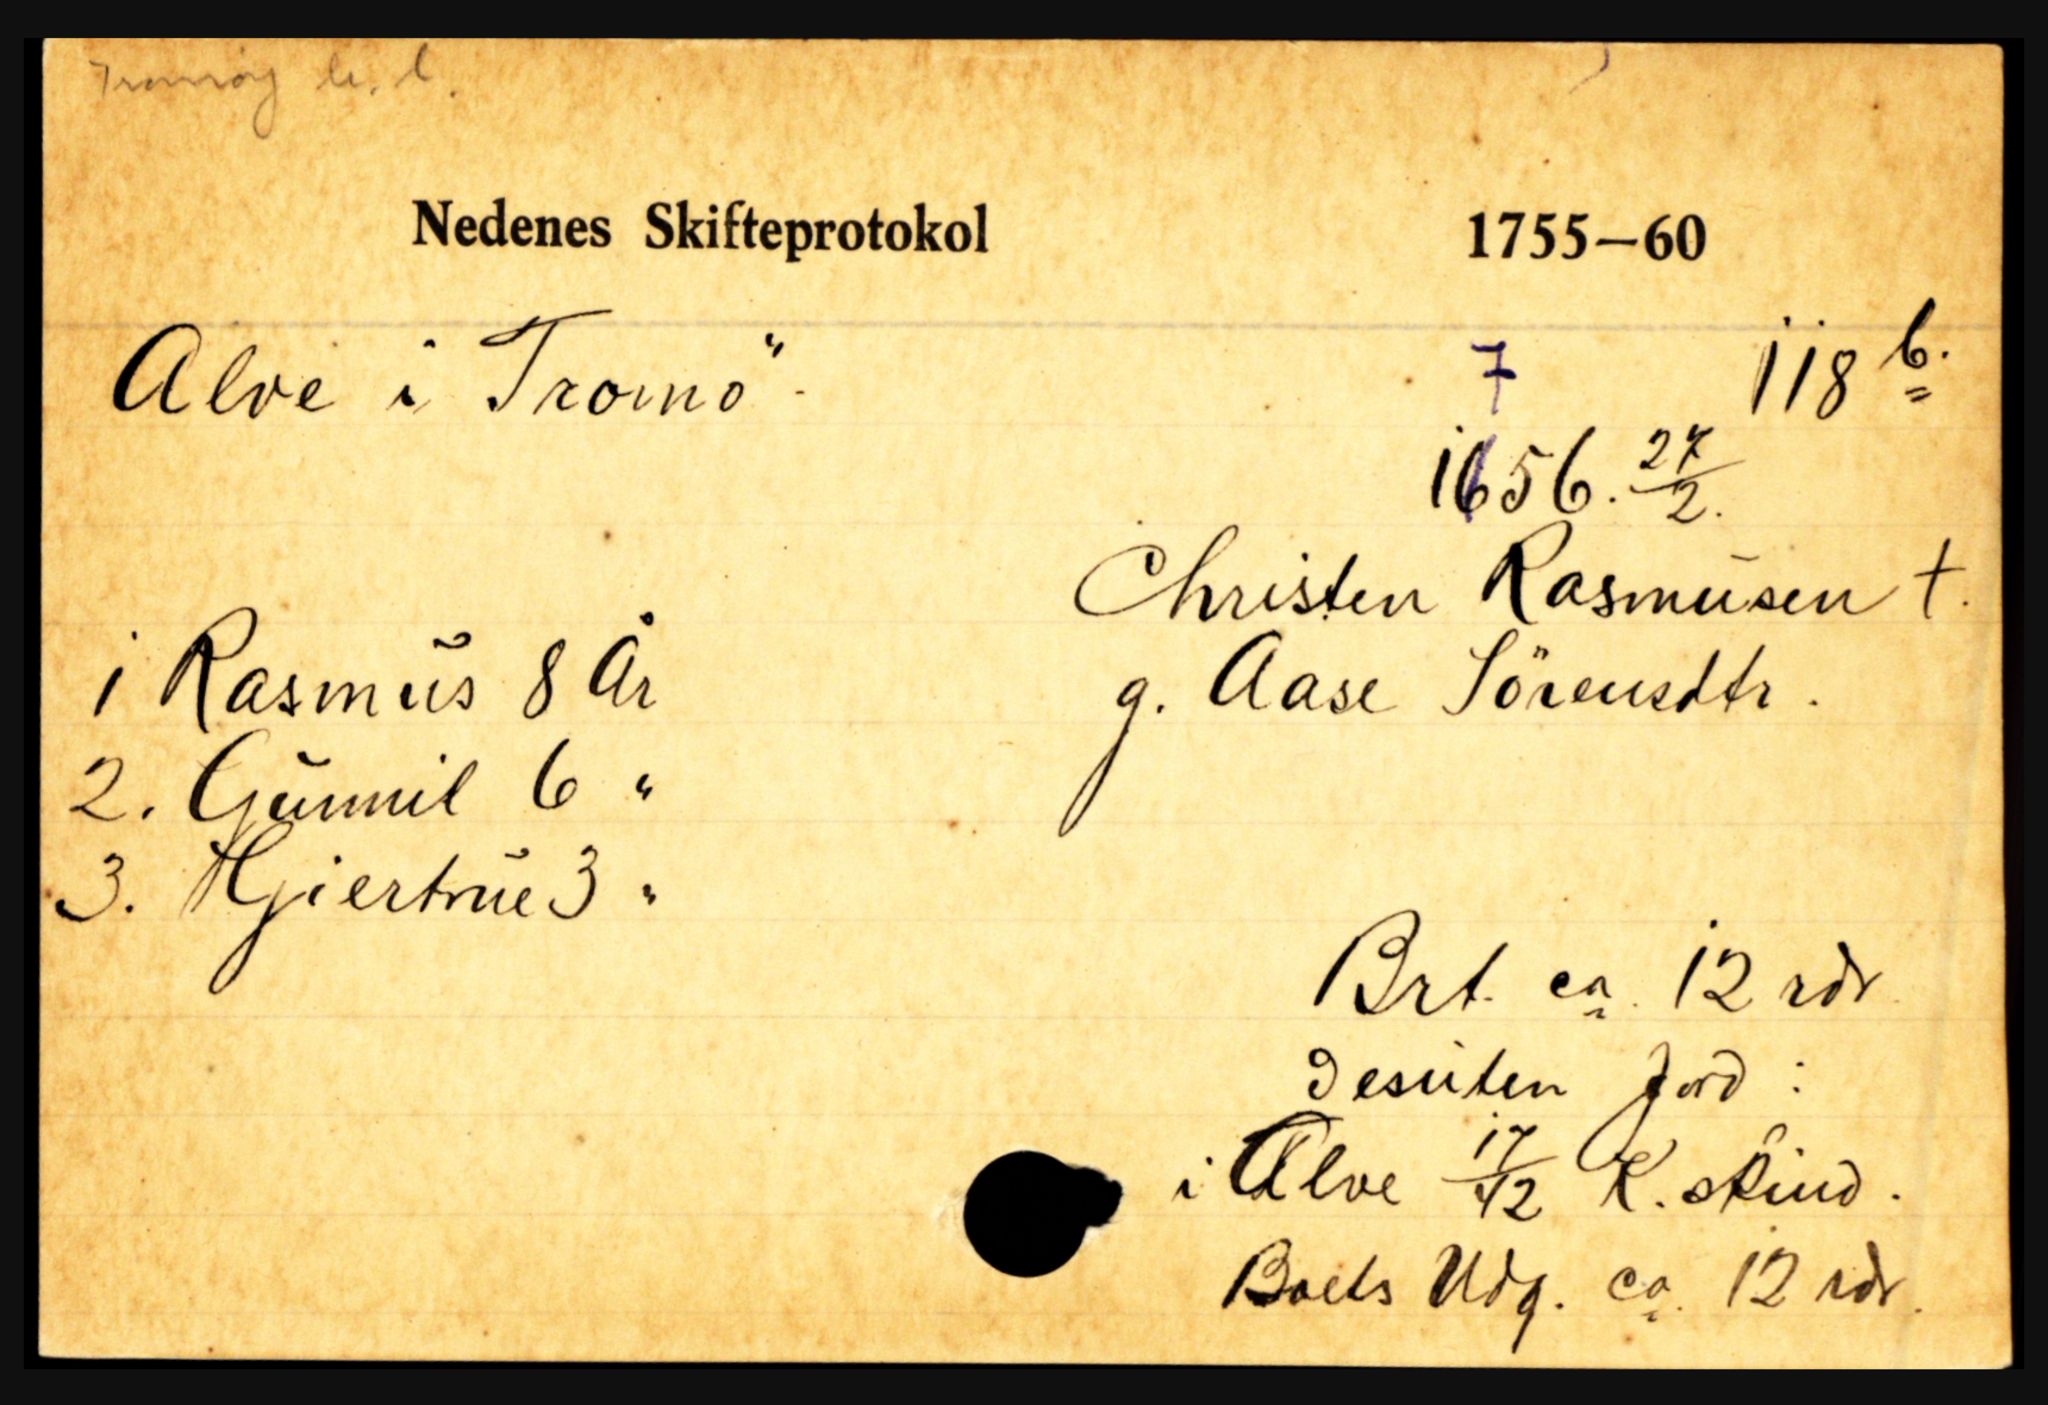 Tromøy
Nedenes Skifteprotokol 1755—60
Alve i Tromö. 7 118 b.
1656. 27/2.
Christen Rasmusen †.
1 Rasmus 8 År g. Aase Sörensdtr.
2. Gunnil 6 "
3. Hjiertrue 3 "
Brt. ca. 12 rdr
Desuten Jord :
i Alve 17/12 K. skind.
Boets Udg. ca. 12 rdr.